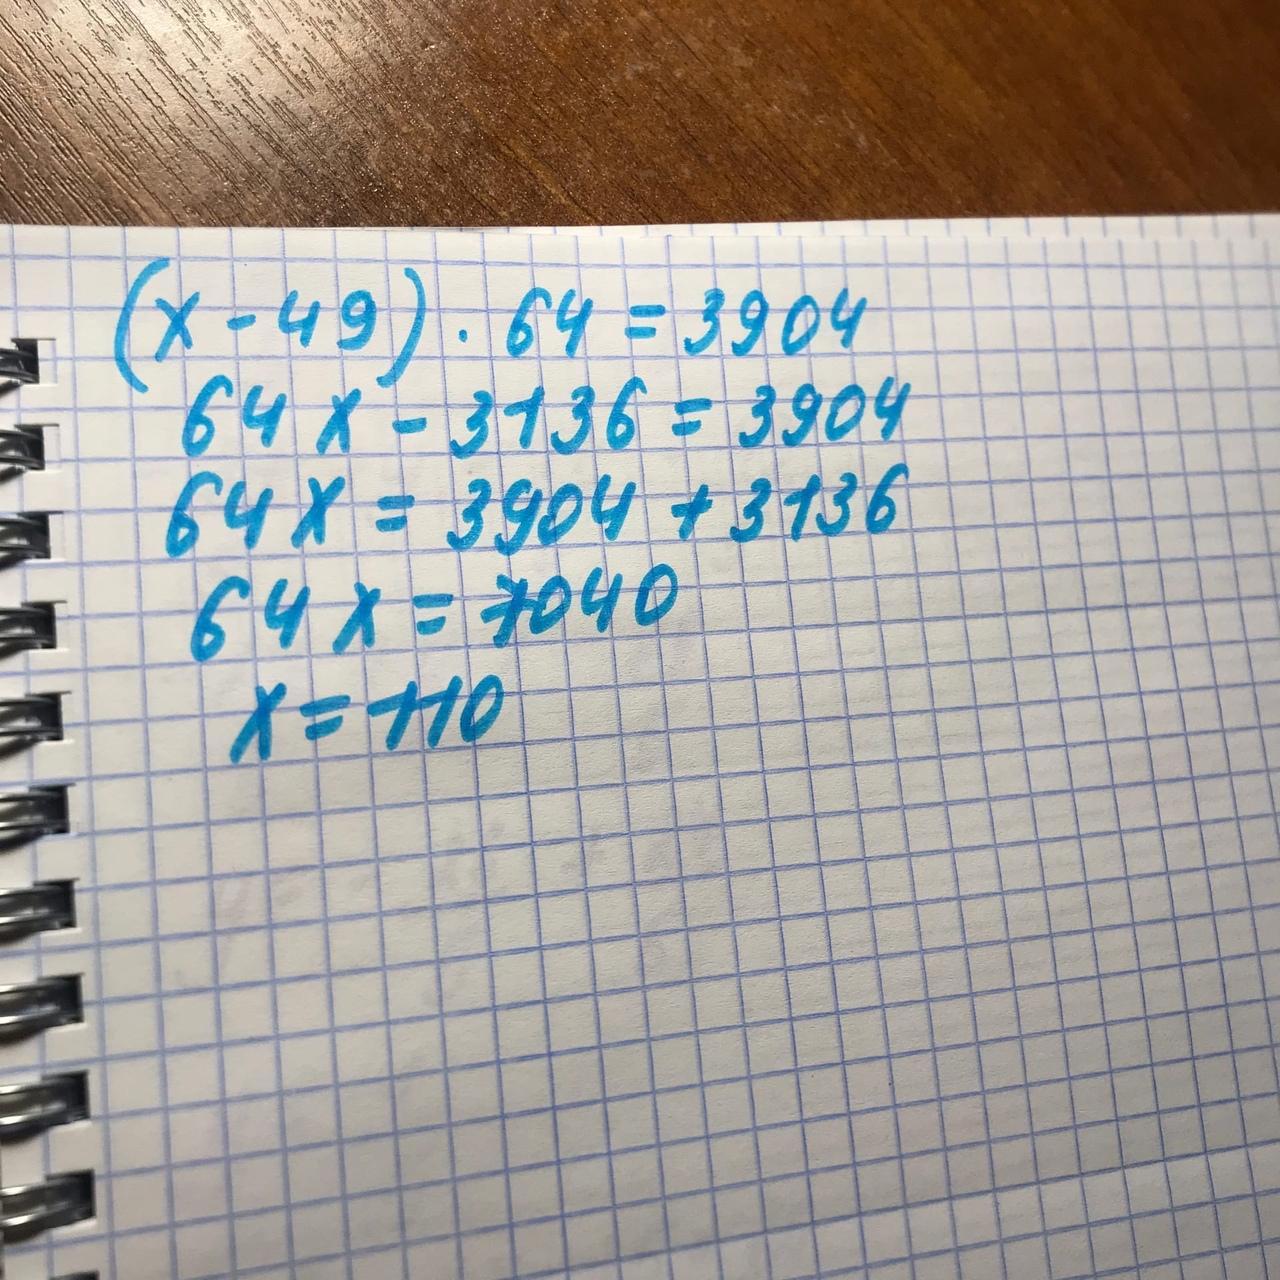 (x - 49) · 64 = 3904
64x - 3136 = 3904
64x = 3904 + 3136
64x = 7040
x = 110